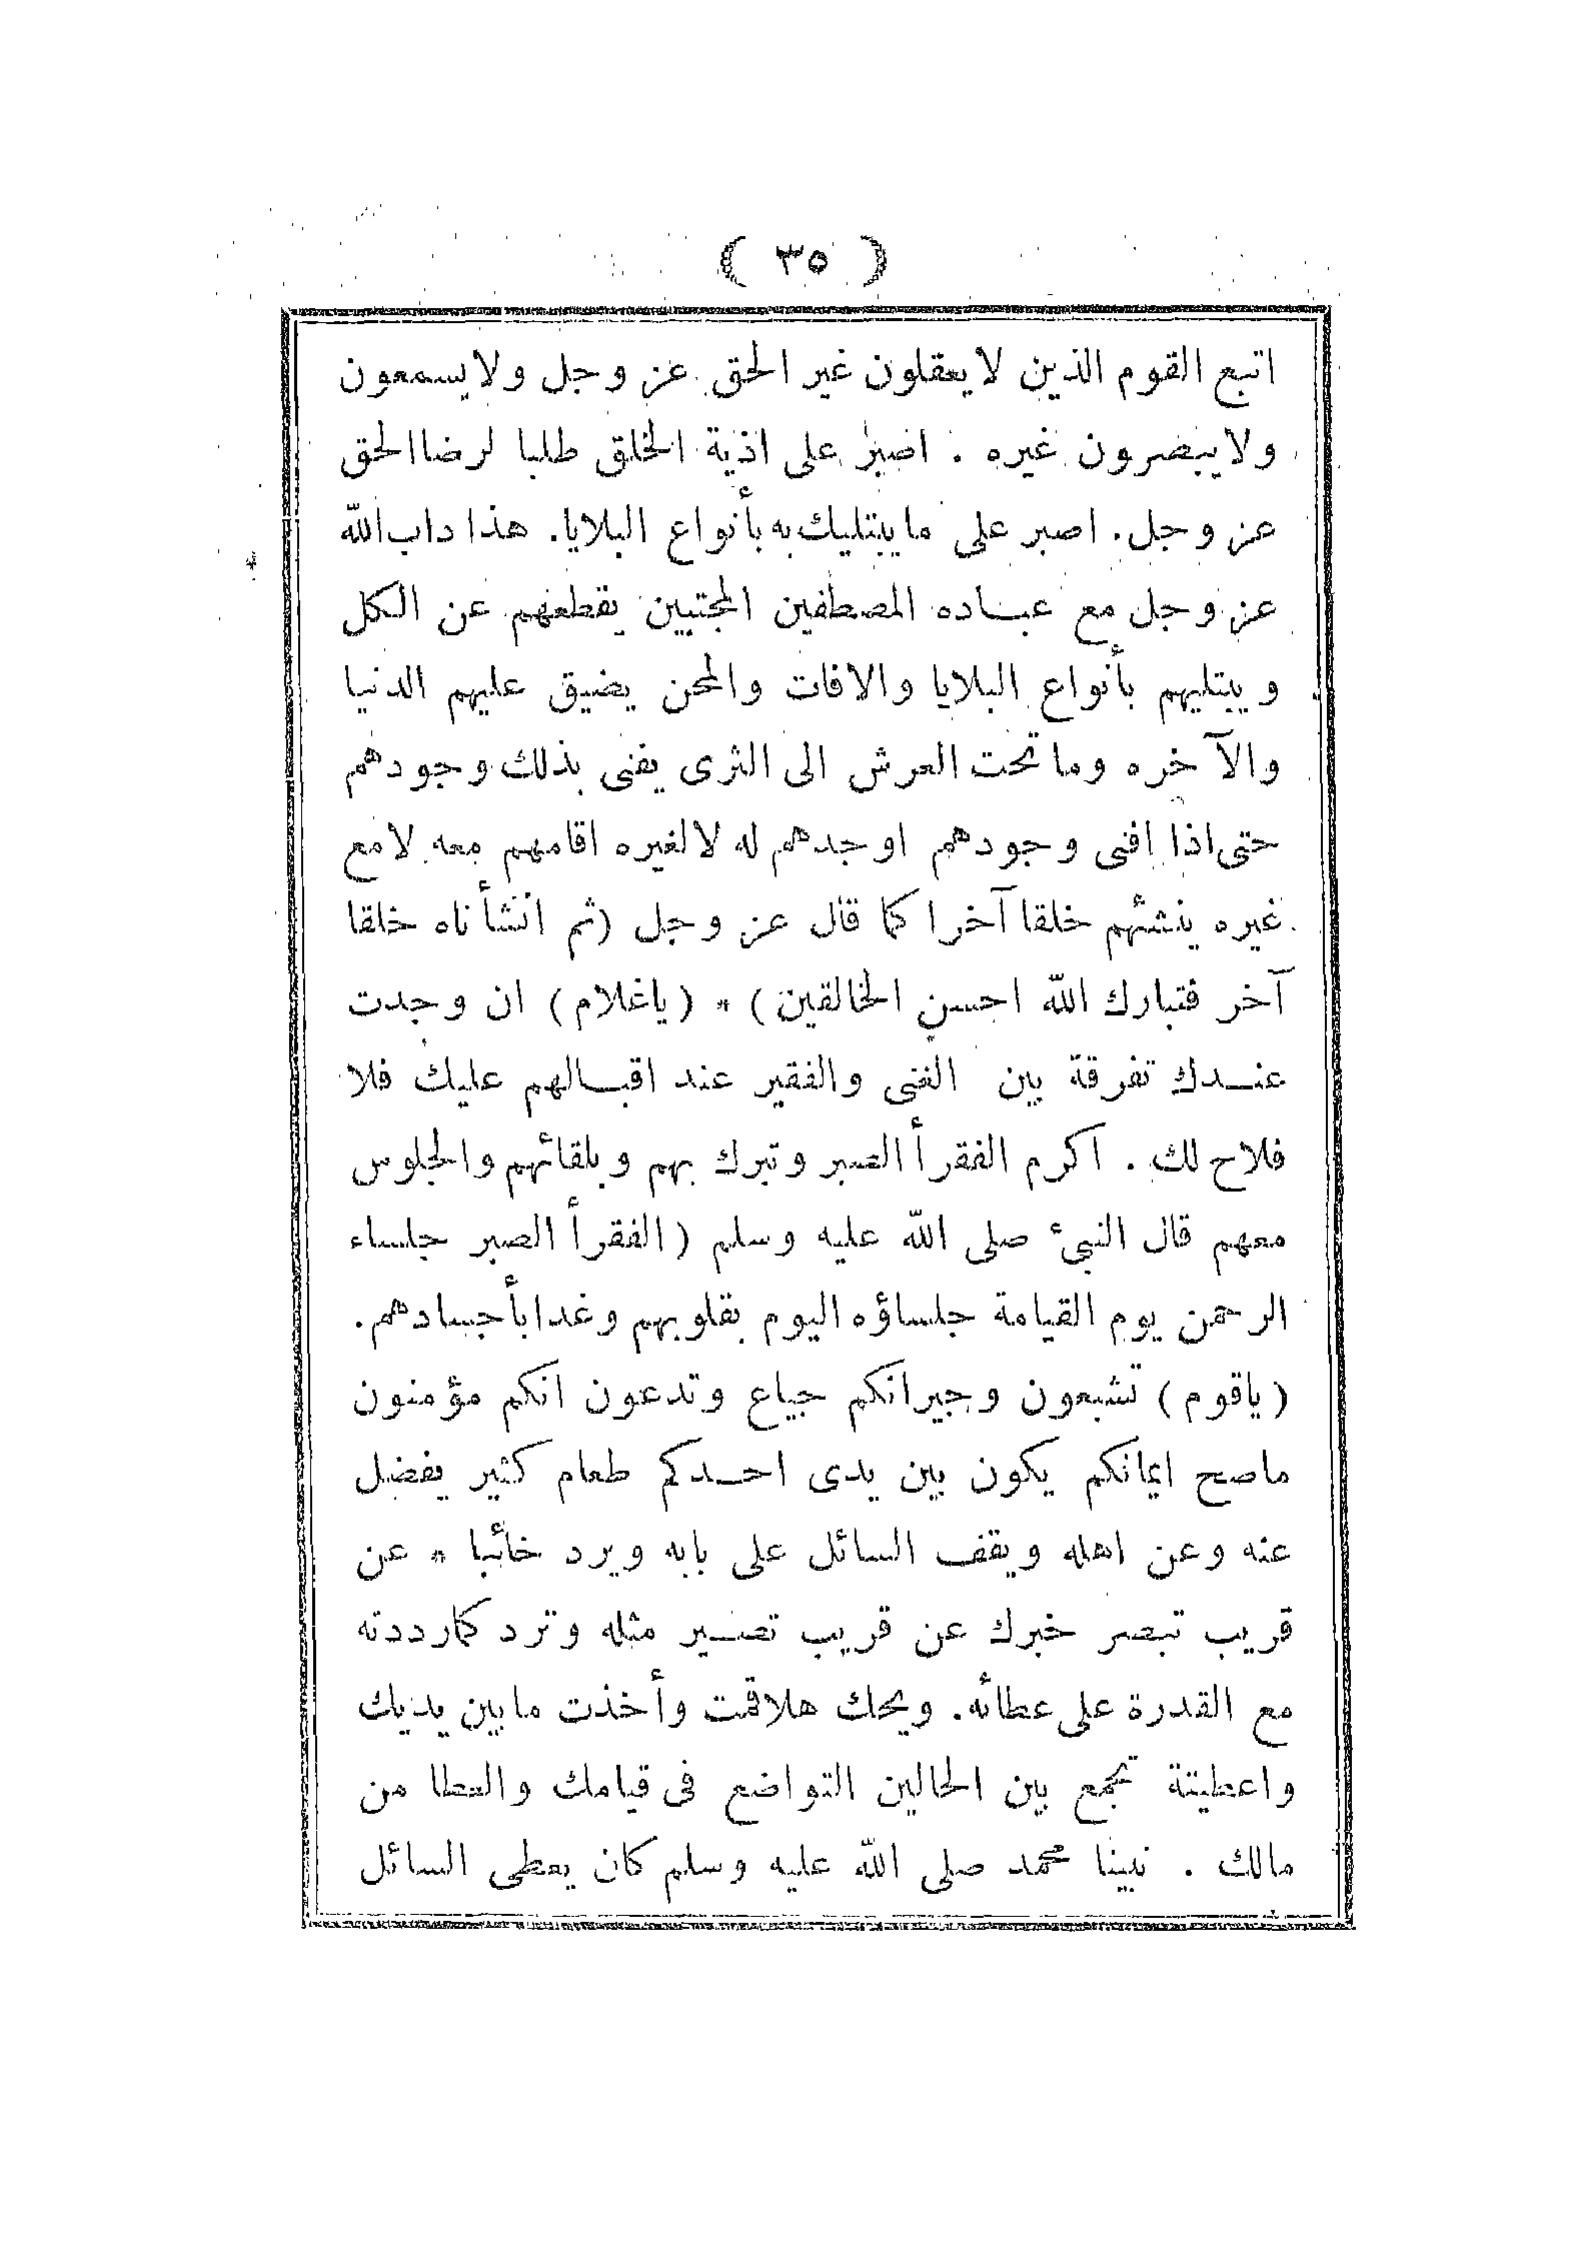 ( ٣٥ )
اتبع القوم الذين لا يعقلون غير الحق عز وجل ولا يسمعون
ولا يبصرون غيره . اصبر على اذية الخلق طلبا لرضا الحق
عز وجل. اصبر على ما يبتليك به بأنواع البلايا. هذا داب الله
عز وجل مع عباده المصطفين المجتبين يقطعهم عن الكل
ويبتليهم بأنواع البلايا والافات والمحن يضيق عليهم الدنيا
والآخره وما تحت العرش الى الثرى يفنى بذلك وجودهم
حتى اذا افنى وجودهم اوجدهم له لا لغيره اقامهم معه لا مع
غيره ينشئهم خلقا آخرا كما قال عز وجل (ثم انشأناه خلقا
آخر فتبارك الله احسن الخالقين) * (ياغلام) ان وجدت
عندك تفرقة بين الغنى والفقير عند اقبالهم عليك فلا
فلاح لك . اكرم الفقرأ الصبر وتبرك بهم وبلقائهم والجلوس
معهم قال النبىء صلى الله عليه وسلم (الفقرأ الصبر جلساء
الرحمن يوم القيامة جلساؤه اليوم بقلوبهم وغدا بأجسادهم.
(ياقوم) تشبعون وجيرانكم جياع وتدعون انكم مؤمنون
ماصح ايمانكم يكون بين يدى احدكم طعام كثير يفضل
عنه وعن اهله ويقف السائل على بابه ويرد خائبا * عن
قريب تبصر خبرك عن قريب تصير مثله وترد كما رددته
مع القدرة على عطائه. ويحك هلا قمت وأخذت ما بين يديك
واعطيتة تجمع بين الحالين التواضع فى قيامك والعطا من
مالك . نبينا محمد صلى الله عليه وسلم كان يعطى السائل